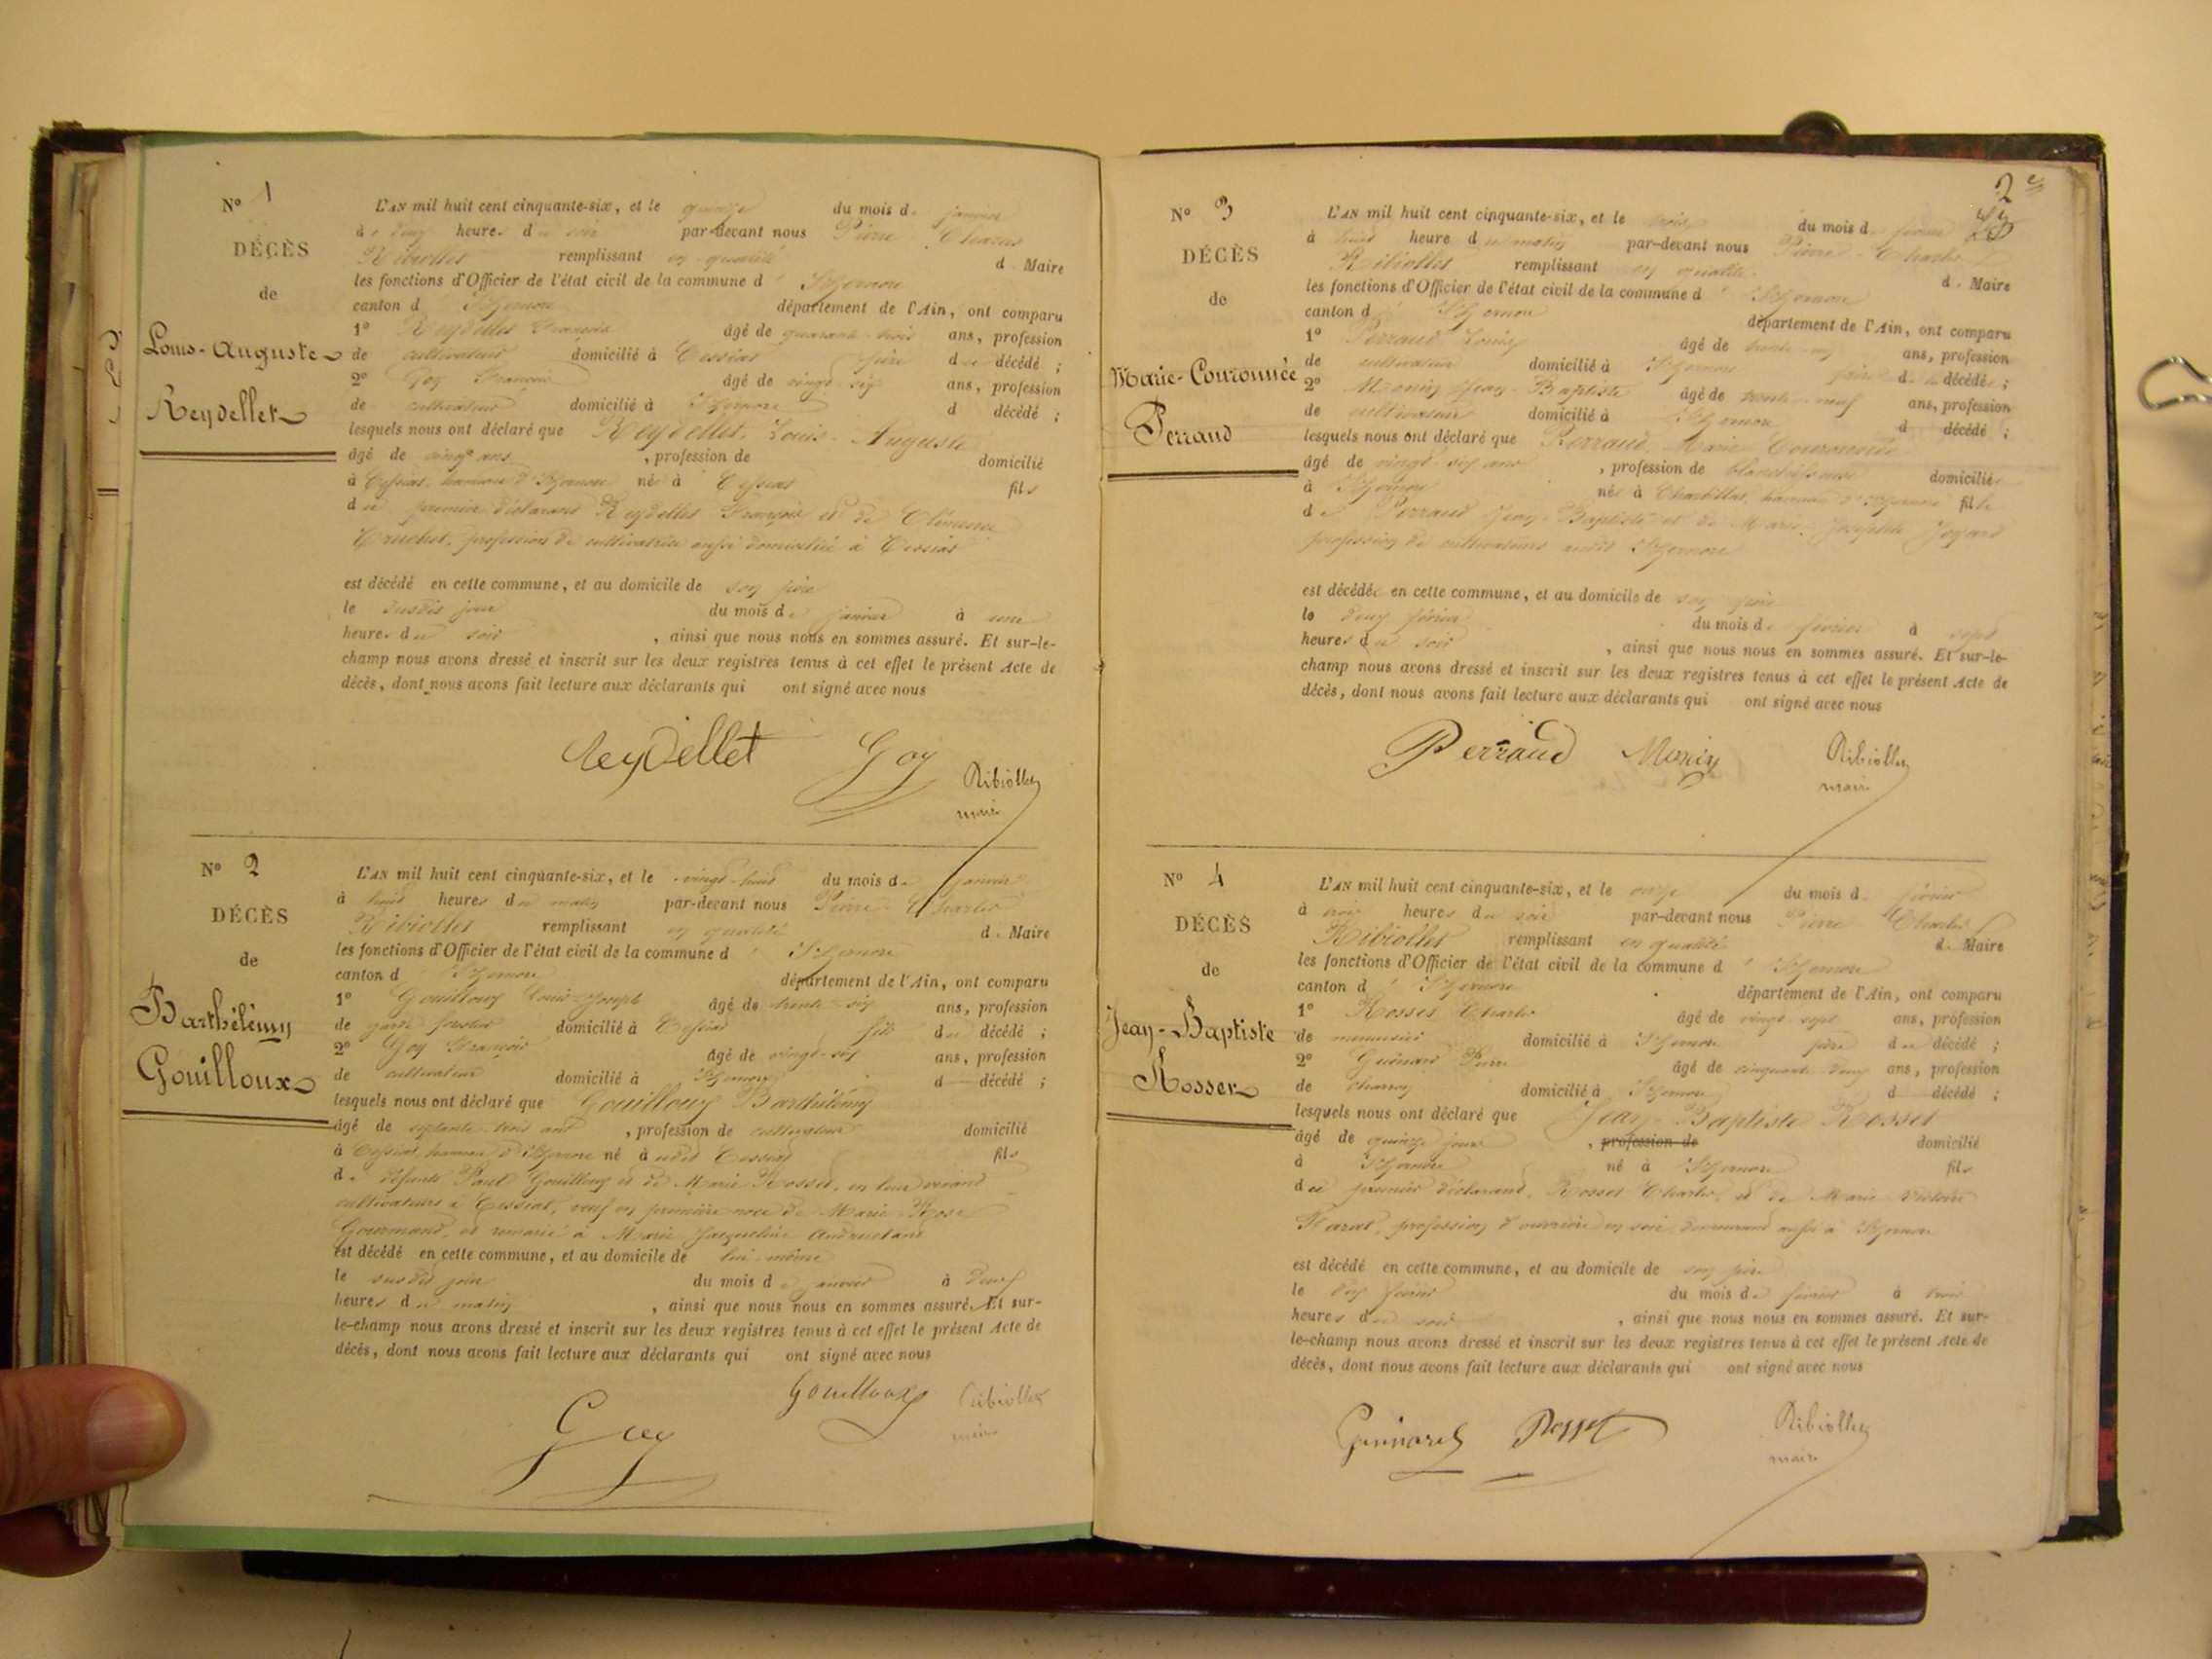 N° 1
DÉCÈS
de
Louis-Auguste
Reydellet
L'AN mil huit cent cinquante-six, et le quinze du mois de janvier
à deux heures du soir par-devant nous Pierre Charles
Ribiollet remplissant en qualité de Maire
les fonctions d'Officier de l'état civil de la commune d'Izernore
canton d'Izernore département de l'Ain, ont comparu
1° Reydellet François âgé de quarante-trois ans, profession
de cultivateur domicilié à Cessiat père du décédé ;
2° Goy François âgé de vingt six ans, profession
de cultivateur domicilié à Izernore d décédé ;
lesquels nous ont déclaré que Reydellet, Louis-Auguste
âgé de cinq ans, profession de domicilié
à Cessiat, hameau d'Izernore né à Cessiat fils
du premier déclarant Reydellet François et de Clémence
profession de cultivatrice aussi domiciliée à Cessiat
est décédé en cette commune, et au domicile de son père
le susdit jour du mois de janvier à une
heure du soir, ainsi que nous nous en sommes assuré. Et sur-le-
champ nous avons dressé et inscrit sur les deux registres tenus à cet effet le présent Acte de
décès, dont nous avons fait lecture aux déclarants qui ont signé avec nous
Reydellet Goy Ribiollet
maire
N° 2
DÉCÈS
de
Barthélémy
Gouilloux
L'AN mil huit cent cinquante-six, et le vingt-huit du mois de janvier
à huit heures du matin par-devant nous Pierre-Charles
Ribiollet remplissant en qualité de Maire
les fonctions d'Officier de l'état civil de la commune d'Izernore
canton d'Izernore département de l'Ain, ont comparu
1° Gouilloux Louis-Joseph âgé de trente-six ans, profession
de garde forestier domicilié à Cessiat fils du décédé ;
2° Goy François âgé de vingt-six ans, profession
de cultivateur domicilié à Izernore d décédé ;
lesquels nous ont déclaré que Gouilloux Barthélémy
âgé de septante-trois ans, profession de cultivateur domicilié
à Cessiat, hameau d'Izernore né à udit Cessiat fils
de défunts Paul Gouilloux et de Marie Rosset, en leur vivant
cultivateurs à Cessiat, veuf en première noce de Marie-Rose
Gourmand, et remarié à Marie Jacqueline
est décédé en cette commune, et au domicile de lui-même
le susdit jour du mois de janvier à
heures du matin, ainsi que nous nous en sommes assuré. Et sur-
le-champ nous avons dressé et inscrit sur les deux registres tenus à cet effet le présent Acte de
décès, dont nous avons fait lecture aux déclarants qui ont signé avec nous
Goy Gouilloux Ribiollet
maire
2e
N° 3
DÉCÈS
de
Marie-Couronnée
Perraud
L'AN mil huit cent cinquante-six, et le trois du mois de février
à huit heure du matin par-devant nous Pierre-Charles
Ribiollet remplissant en qualité de Maire
les fonctions d'Officier de l'état civil de la commune d'Izernore
canton d'Izernore département de l'Ain, ont comparu
1° Perraud Louis âgé de ans, profession
de cultivateur domicilié à Izernore décédée ;
2° Monin Jean-Baptiste âgé de trente-neuf ans, profession
de cultivateur domicilié à Izernore d décédé ;
lesquels nous ont déclaré que Perraud, Marie-Couronnée
âgé de vingt-six ans, profession de domiciliée
à Izernore née à hameau d'Izernore fille
de Perraud Jean-Baptiste et de Marie-Josephte
profession de cultivateurs audit Izernore
est décédée en cette commune, et au domicile de son père
le deux février du mois de février à sept
heures du soir, ainsi que nous nous en sommes assuré. Et sur-le-
champ nous avons dressé et inscrit sur les deux registres tenus à cet effet le présent Acte de
décès, dont nous avons fait lecture aux déclarants qui ont signé avec nous
Perraud Monin Ribiollet
maire
N° 4
DÉCÈS
de
Jean-Baptiste
Rosset
L'AN mil huit cent cinquante-six, et le onze du mois de février
à trois heures du soir par-devant nous Pierre-Charles
Ribiollet remplissant en qualité de Maire
les fonctions d'Officier de l'état civil de la commune d'Izernore
canton d'Izernore département de l'Ain, ont comparu
1° Rosset Charles âgé de vingt-sept ans, profession
de menuisier domicilié à Izernore père du décédé ;
2° Guénard Pierre âgé de cinquante-deux ans, profession
de charron domicilié à Izernore d décédé ;
lesquels nous ont déclaré que Jean-Baptiste Rosset
âgé de quinze jours, profession de domicilié
à Izernore né à Izernore fils
du premier déclarant, Rosset Charles et de Marie Victoire
profession d'ouvrière en soie, demeurant aussi à Izernore
est décédé en cette commune, et au domicile de son père
le dix février du mois de février à trois
heures du soir, ainsi que nous nous en sommes assuré. Et sur-
le-champ nous avons dressé et inscrit sur les deux registres tenus à cet effet le présent Acte de
décès, dont nous avons fait lecture aux déclarants qui ont signé avec nous
Guénard Rosset Ribiollet
maire